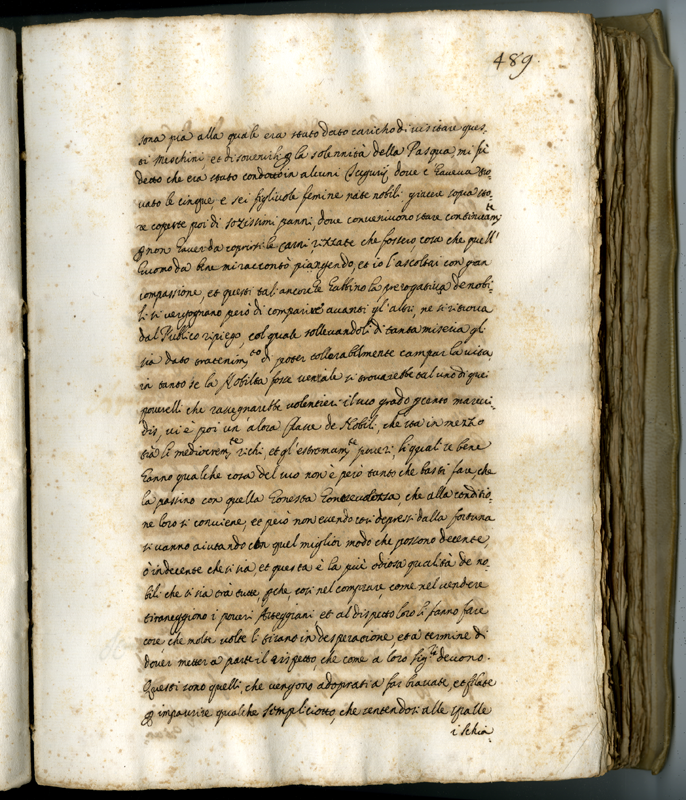 489.
sona pia alla quale era stato dato carichodi uisitare ques,
ti Meschini et disouenirli la solennità della Pasqua, mi fù
detto che era stato condotto in alcuni dove e haveva tro,
vato le cinque e sei figliuole femine nate nobili giacere sopra sto,
re coperte poi di sozissimi panni, dove convenivono stare continuam.te
non haver da coprirsi le carni che fossero cosa che quell'
huomo da bene mi raccontò piangendo, et io l'ascoltai con gran
compassione, et questi tali ancorche habbino la prerogativa de nobi,
li si vergognano però di comparire avanti gl'altri, ne si ritrova
dal Publico ripiego, col quale sollevandoli di tanta miseria gli
sia dato tratenim.to di poter collorabilmente campar la vita
in tanto se la Nobiltà fosse venale si trovarebbe tal uno di quei
poverelli che rasegnarebbe volentieri il suo grado cento marcei,
dis, vi è poi un'alora Classe de Nobili, che sta in mezzo
trà li mediocrem.te richi, et gl'estremam.te poveri, li quali se bene
hanno qualche cosa del suo non è però tanto che basti fare che
la passino con quella honesta honorevolezza, che alla conditio,
ne loro si conviene, et però non essendo così depressi dalla fortuna
si vanno aiutando con quel miglior modo che possono decente,
ò indecente che si sia et questa è la più odiosa qualità de no,
bili che si sia trà tutte che così nel comprare, come nel vendere
tiraneggiono i poveri Arteggiani et al dispetto loro li fanno fare
cose che molte volte li tirano in desperacione et a termine di
dover metter a parte il rispetto, che come a loro sig.ri devono.
Questi sono quelli, che vengono adoprati a far bravate, et filate
impaurire qualche sempliciotto, che sentendosi alle spalle
i schia,